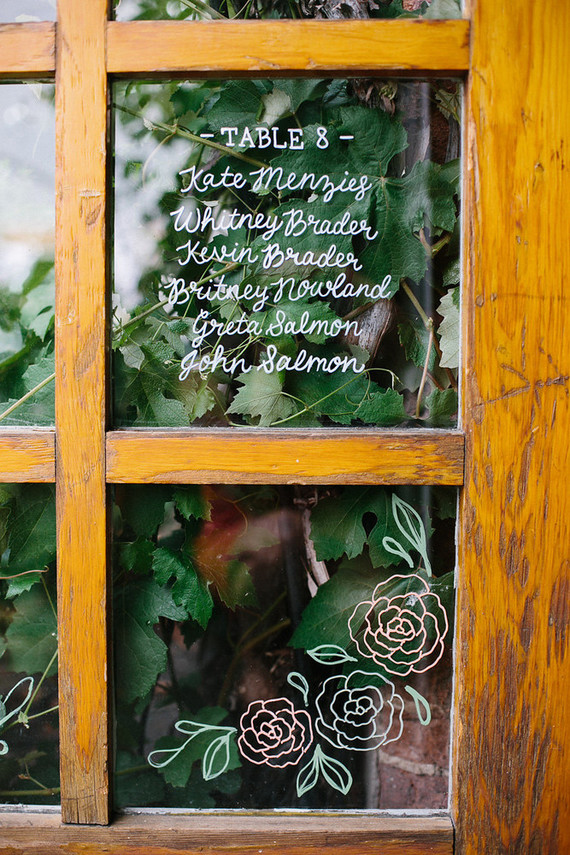 - TABLE 8 -
Kate Menzies
Whitney Brader
Kevin Brader
Britney Nowland
Greta Salmon
John Salmon